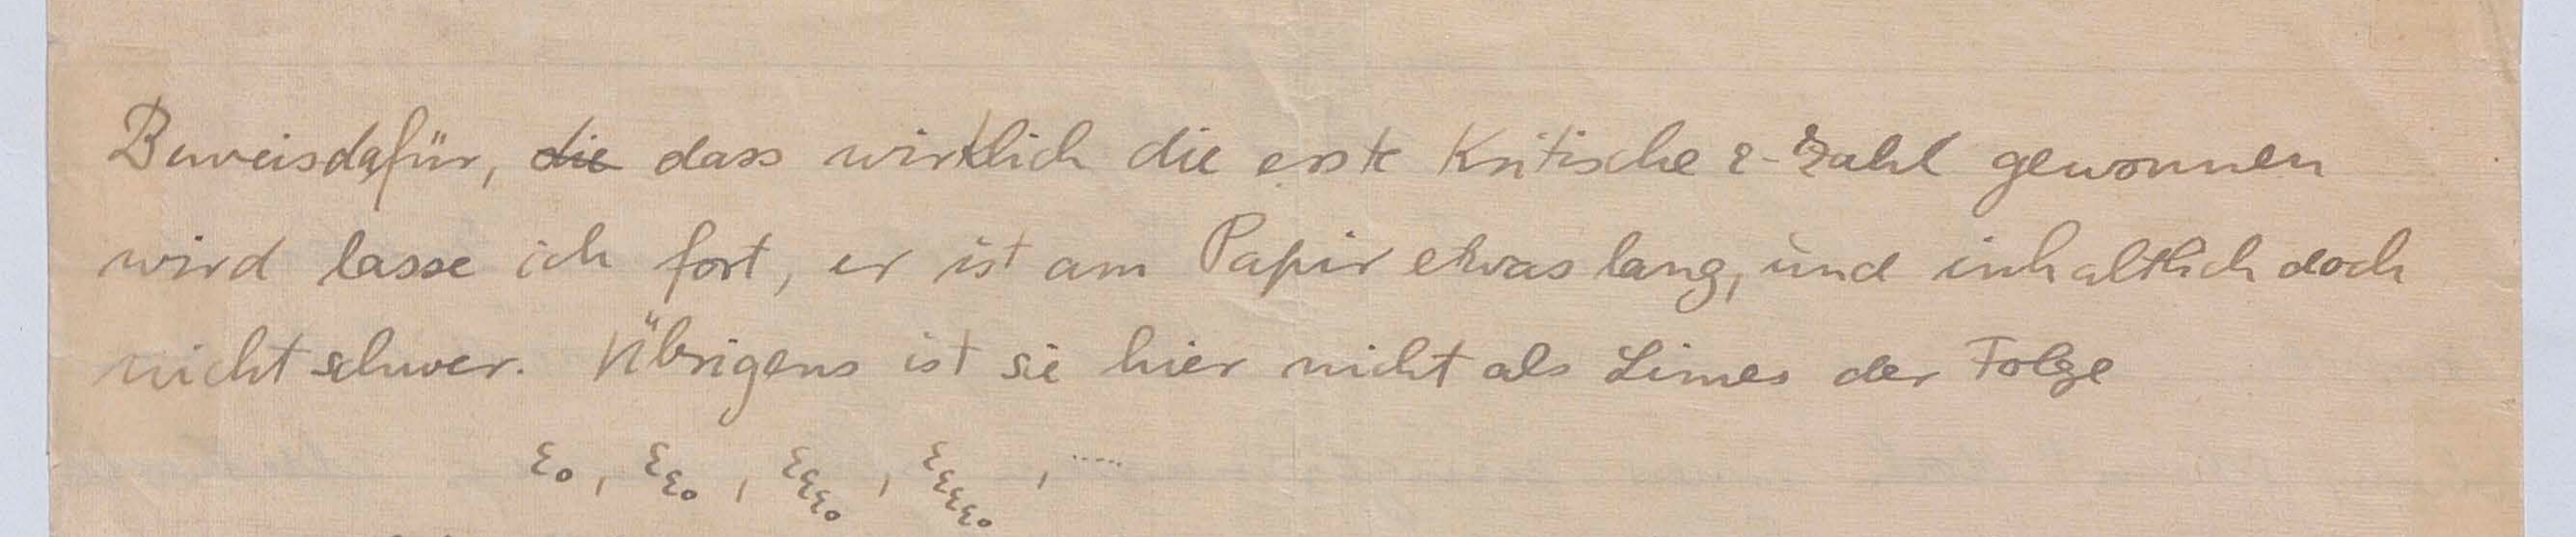 Beweis dafür, die dass wirklich die erste Kritische ε-Zahl gewonnen
wird lasse ich fort, er ist am Papir etwas lang, und inhaltlich doch
nicht schwer. Übrigens ist sie hier nicht als Limes der Folge
ε₀, ε_{ε₀}, ε_{ε_{ε₀}}, ε_{ε_{ε_{ε₀}}}, .....